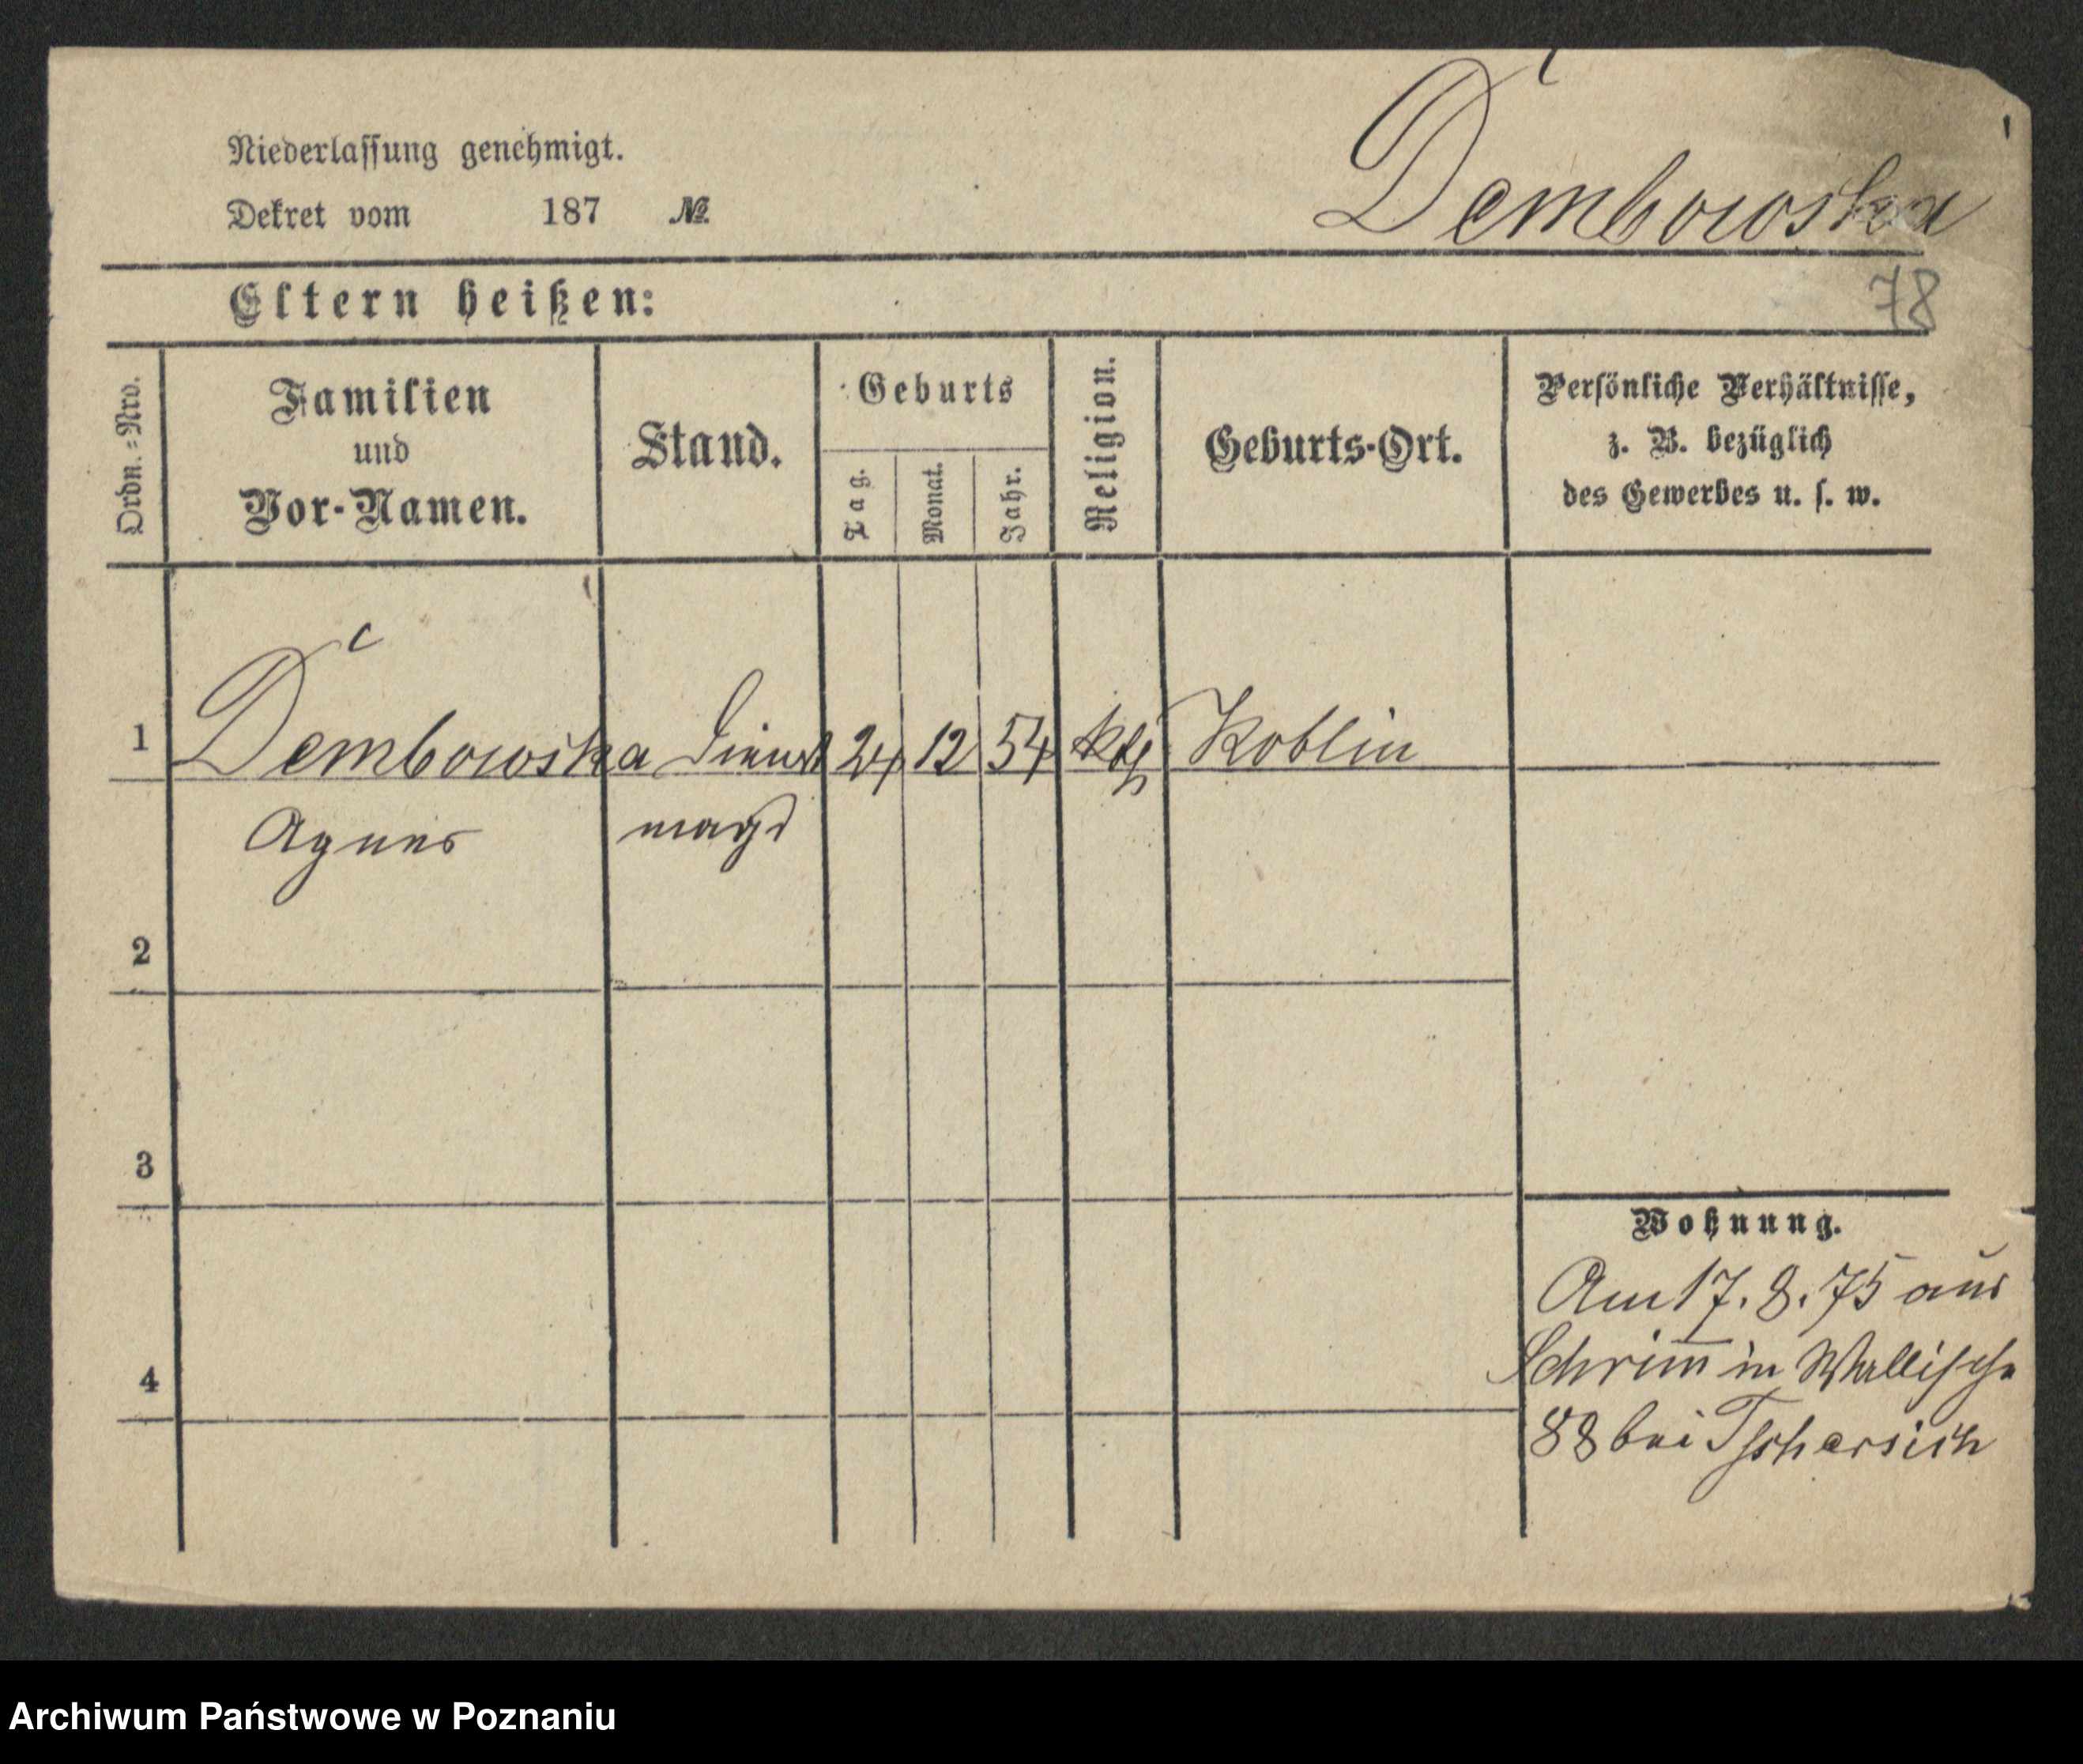 Niederlassung genehmigt.
Dekret vom 187 №
Dembowska
Eltern heißen:
78
Ordn.=Nro.
Familien
und
Vor-Namen.
Stand.
Geburts
Tag.
Monat.
Jahr.
Religion.
Geburts-Ort.
Persönliche Verhältnisse,
z. B. bezüglich
des Gewerbes u. s. w.
1 Dembowska Dienst 24 12 54 kth Koblin
Agnes magd
2
3
4
Wohnung.
Am 17. 8. 75 aus
Schrimm in Wallische
88 bei Tscharsich
Archiwum Państwowe w Poznaniu